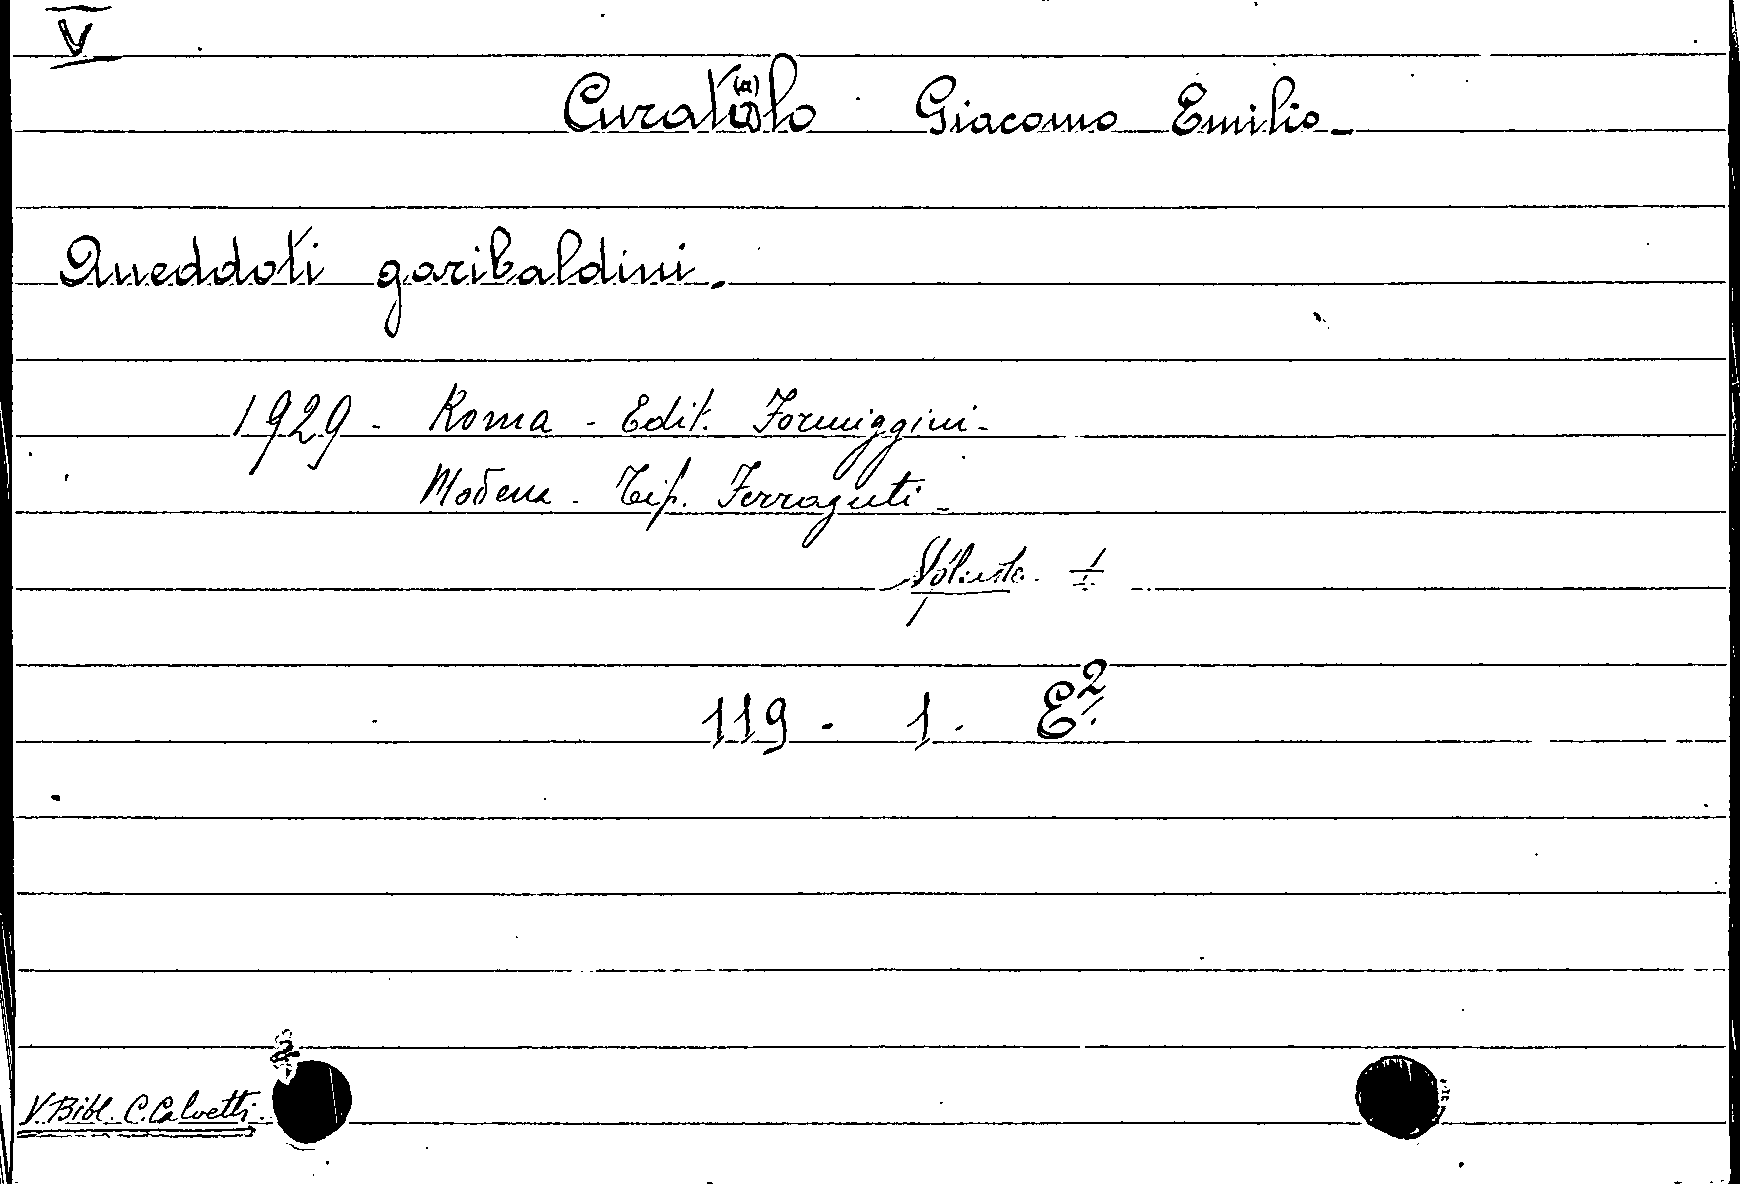 V
Curatolo Giacomo Emilio_
(a)
Aneddoti garibaldini.
1929 - Roma - Edit. Formiggini -
Modena - Tip. Ferraguti -
119 - 1. E².
V. Bibl. C. Calvetti.